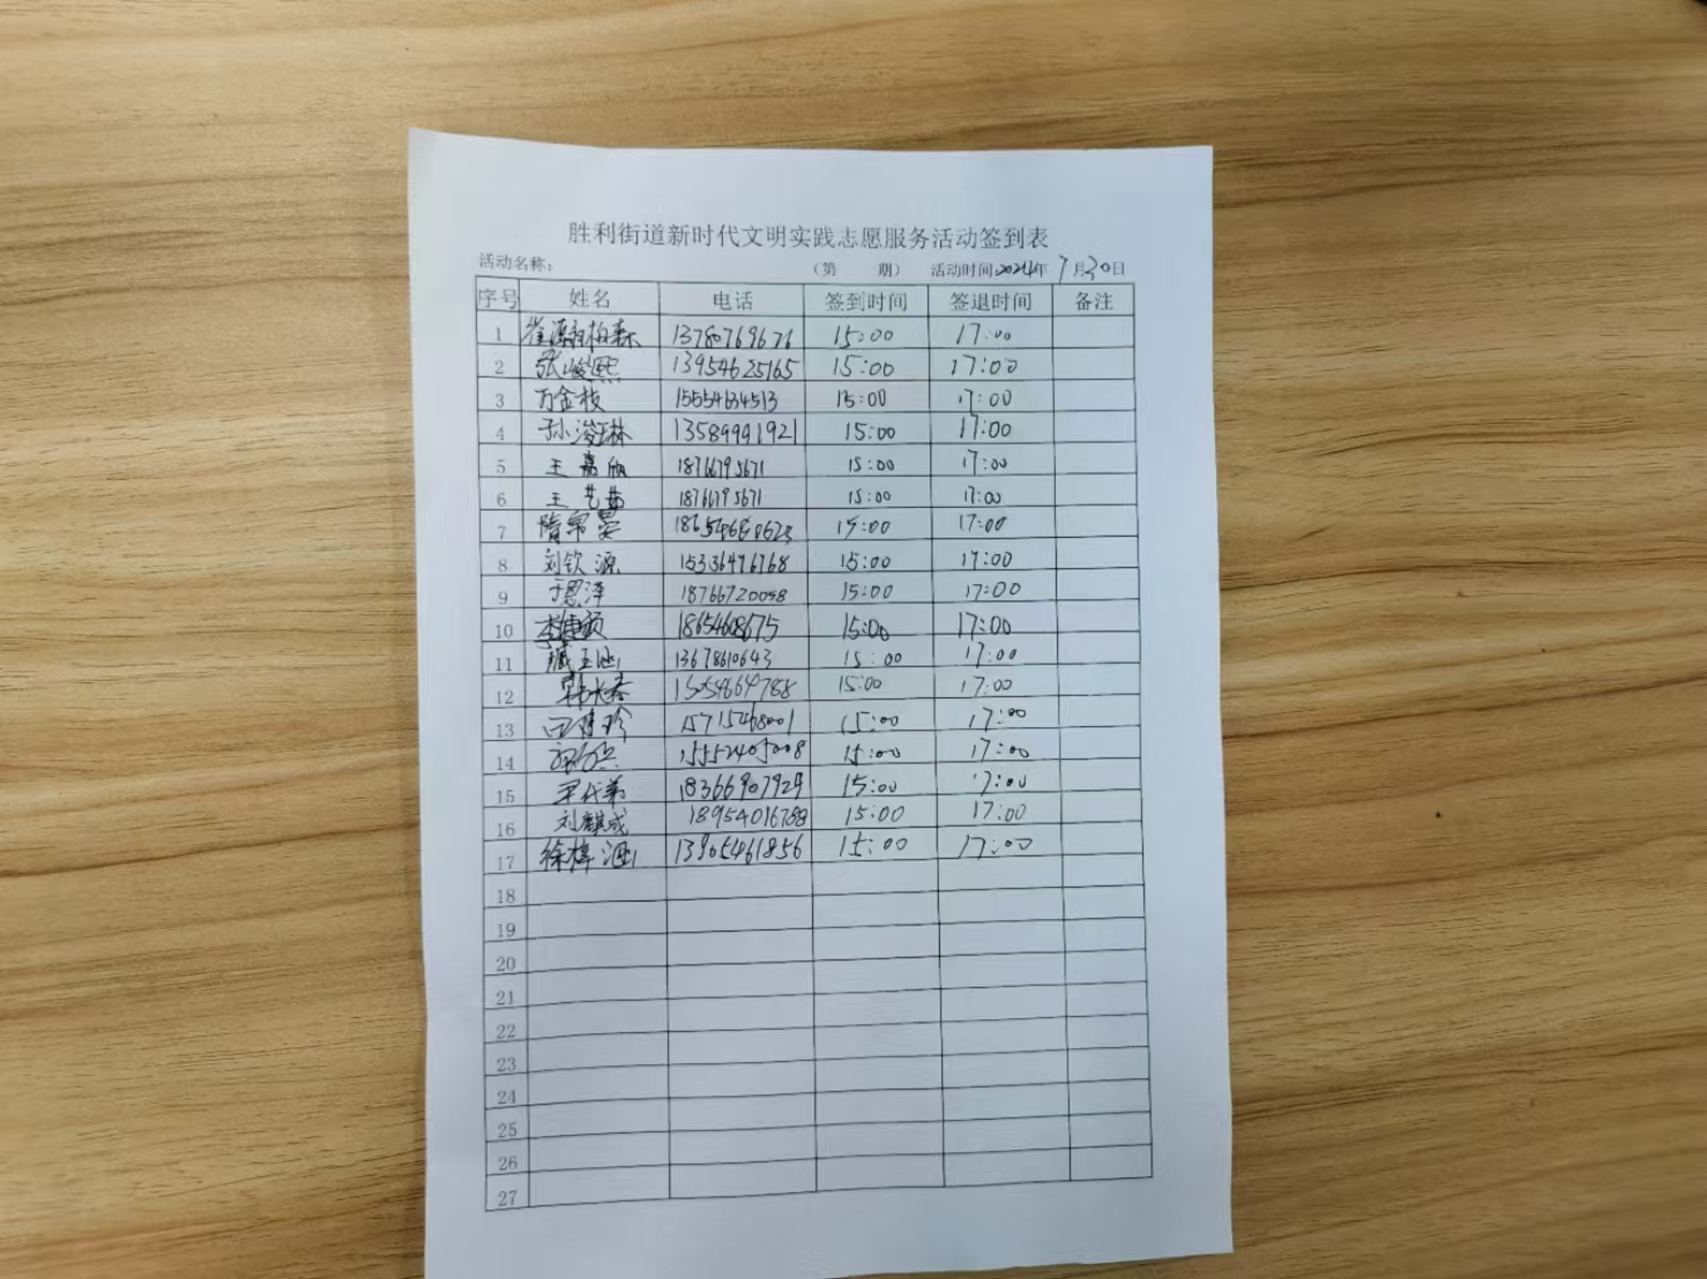 胜利街道新时代文明实践志愿服务活动签到表
活动名称： （第 期） 活动时间2024年7月30日
序号 姓名 电话 签到时间 签退时间 备注
1 13780769671 15:00 17:00
2 张峻熙 13954625165 15:00 17:00
3 万金枝 15554634513 15:00 17:00
4 孙浚琳 13589991921 15:00 17:00
5 王嘉欣 18766795671 15:00 17:00
6 王艺茹 18766795671 15:00 17:00
7 15:00 17:00
8 刘钦源 15336476768 15:00 17:00
9 于恩泽 18766720098 15:00 17:00
10 18654608675 15:00 17:00
11 13678610643 15:00 17:00
12 韩长春 15054664788 15:00 17:00
13 15715468001 15:00 17:00
14 15552405008 15:00 17:00
15 18366907929 15:00 17:00
16 刘麒成 18954016788 15:00 17:00
17 徐梓涵 13905461856 15:00 17:00
18
19
20
21
22
23
24
25
26
27